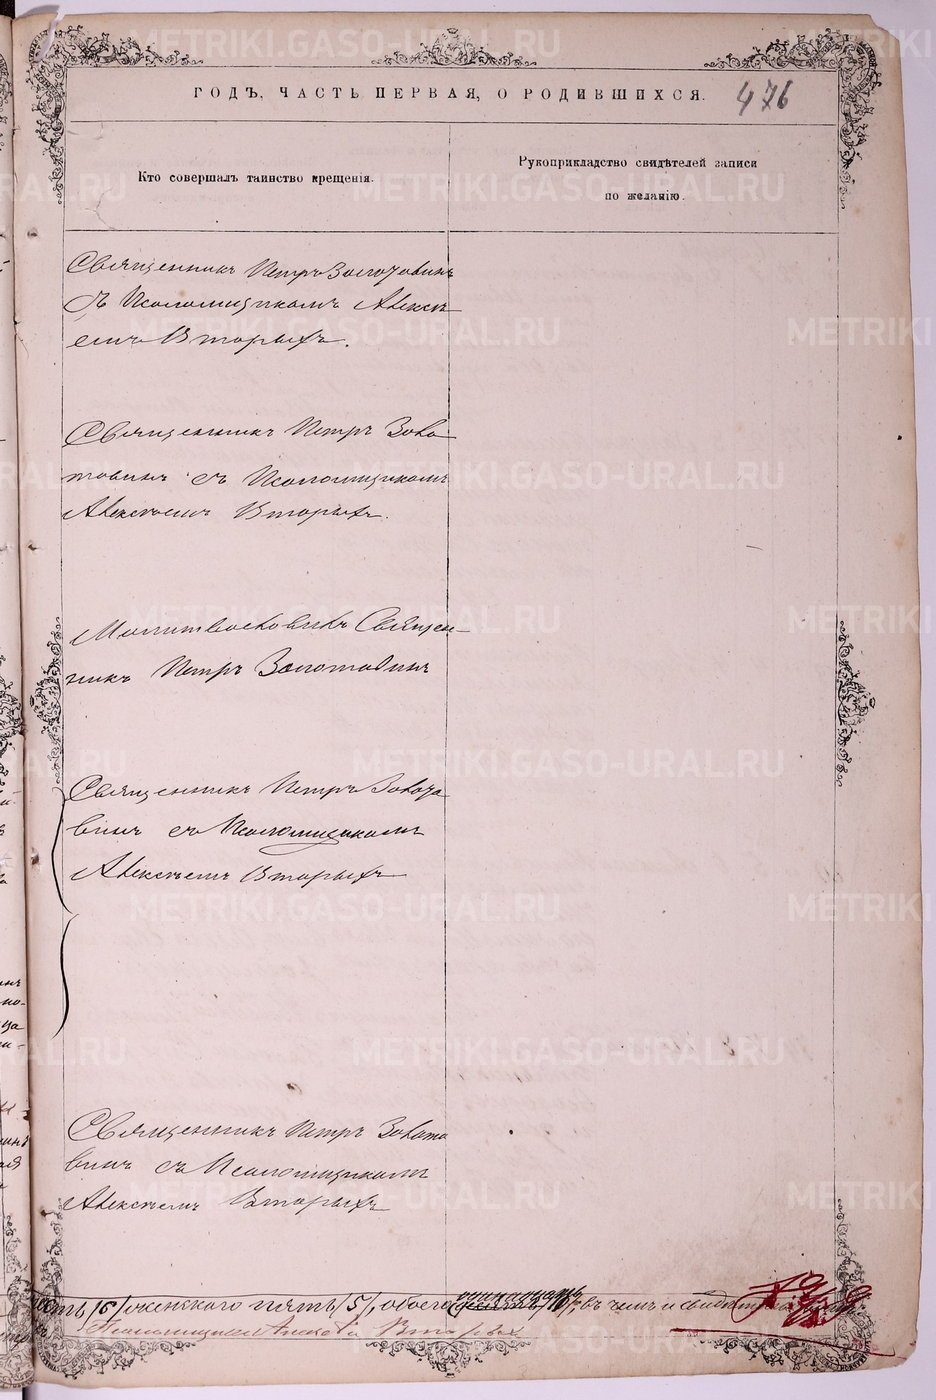 ГОДЪ, ЧАСТЬ ПЕРВАЯ, О РОДИВШИХСЯ.
476
Кто совершалъ таинство крещенія.
Рукоприкладство свидѣтелей записи
по желанію.
Священникъ Петръ Золотовинъ
съ Псаломщикомъ Алексѣ
емъ Вторыхъ.
Священникъ Петръ Золо
товинъ съ Псаломщикомъ
Алексѣемъ Вторыхъ.
Молитвословилъ Священ-
никъ Петръ Золотовинъ
Священникъ Петръ Золото
винъ съ Псаломщикомъ
Алексѣемъ Вторыхъ
Священникъ Петръ Золото
винъ съ Псаломщикомъ
Алексѣемъ Вторыхъ
одиннадцать
/6/ женскаго пять /5/, обоего въ чемъ и
Псаломщикъ Алексѣй Вторыхъ
METRIKI.GASO-URAL.RU